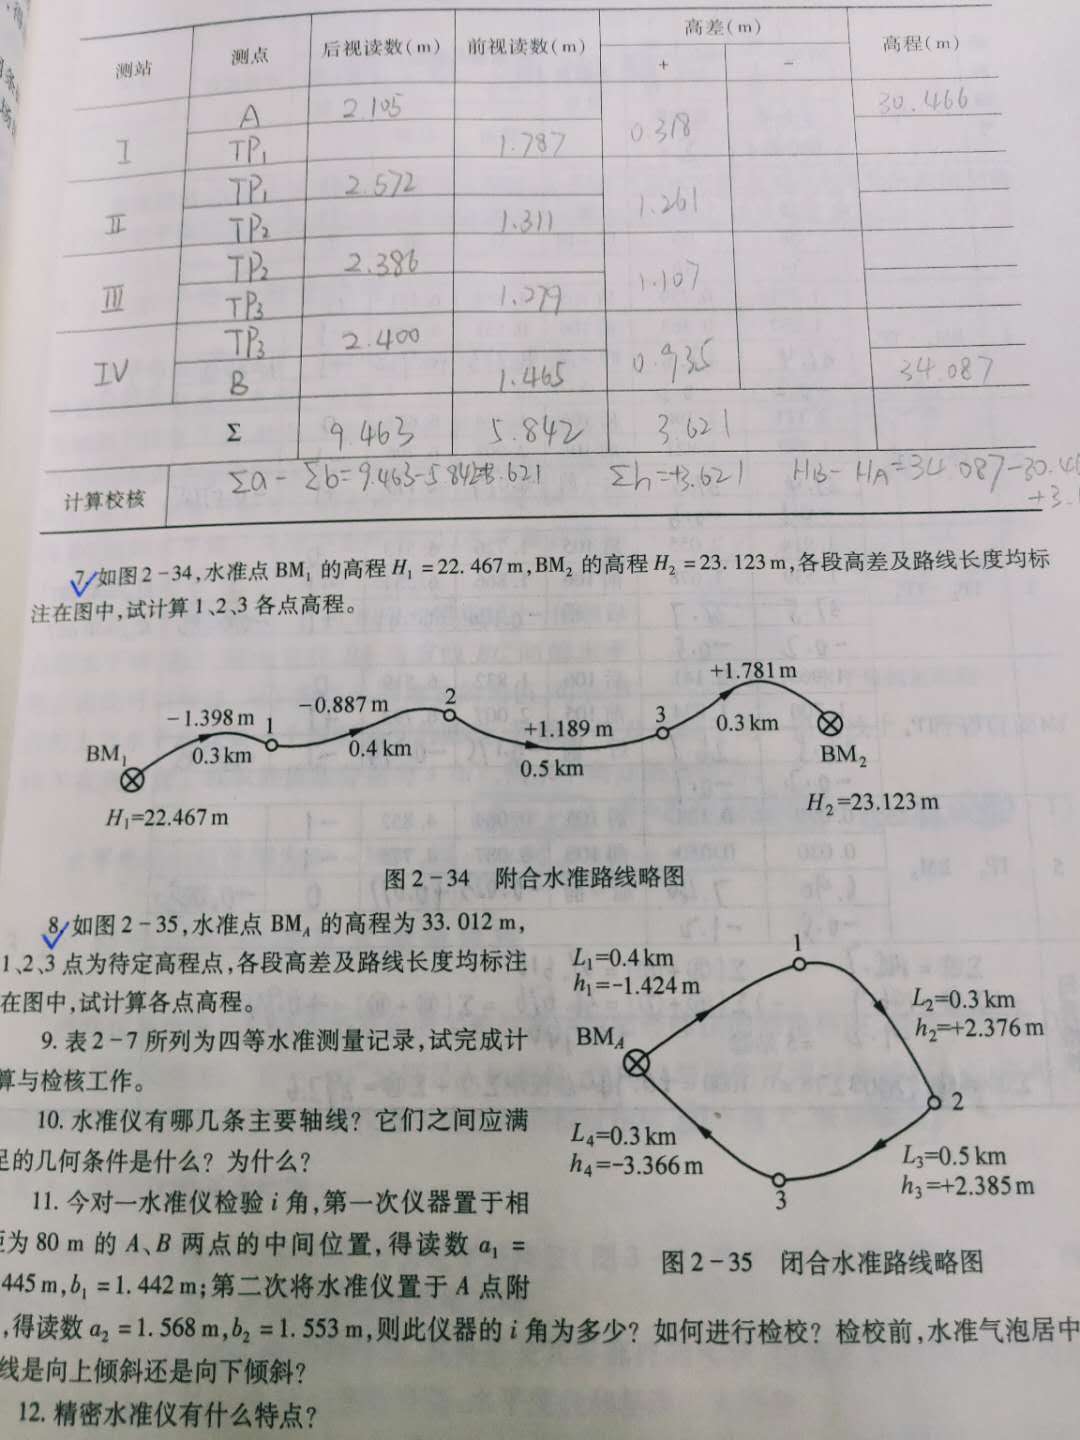 测站 测点 后视读数(m) 前视读数(m) 高差(m) 高程(m)
+ -
I A 2.105 0.318 30.466
TP₁ 1.787
II TP₁ 2.572 1.261
TP₂ 1.311
III TP₂ 2.386 1.107
TP₃ 1.279
IV TP₃ 2.400 0.935
B 1.465 34.087
Σ 9.463 5.842 3.621
计算校核 Σa-Σb=9.463-5.842=3.621 Σh=+3.621 HB-HA=34.087-30.4
+3.
7.如图2-34,水准点BM₁的高程H₁=22.467m,BM₂的高程H₂=23.123m,各段高差及路线长度均标
注在图中,试计算1、2、3各点高程。
BM₁
H₁=22.467 m
-1.398 m
0.3 km
1
-0.887 m
0.4 km
2
+1.189 m
0.5 km
3
+1.781 m
0.3 km
BM₂
H₂=23.123 m
图2-34 附合水准路线略图
8.如图2-35,水准点BM_A的高程为33.012 m,
1、2、3点为待定高程点,各段高差及路线长度均标注
在图中,试计算各点高程。
9.表2-7所列为四等水准测量记录,试完成计
算与检核工作。
10.水准仪有哪几条主要轴线？它们之间应满
足的几何条件是什么？为什么？
11.今对一水准仪检验i角,第一次仪器置于相
距为80 m的A、B两点的中间位置,得读数a₁=
445 m,b₁=1.442 m;第二次将水准仪置于A点附
,得读数a₂=1.568 m,b₂=1.553 m,则此仪器的i角为多少？如何进行检校？检校前,水准气泡居中
线是向上倾斜还是向下倾斜？
12.精密水准仪有什么特点？
BM_A
L₁=0.4 km
h₁=-1.424 m
1
L₂=0.3 km
h₂=+2.376 m
2
L₃=0.5 km
h₃=+2.385 m
3
L₄=0.3 km
h₄=-3.366 m
图2-35 闭合水准路线略图